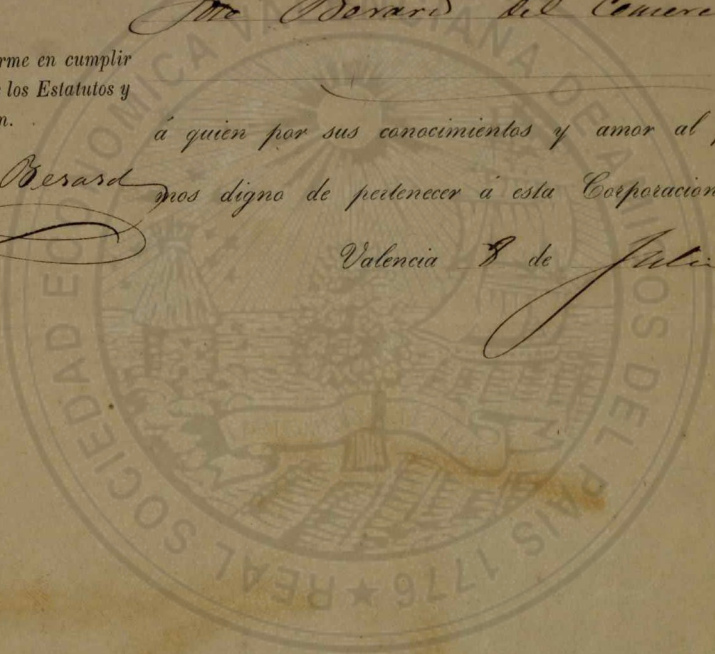 Berard del
rme en cumplir
los Estatutos y
n.
á quien por sus conocimientos y amor al p
Berard
mos digno de pertenecer á esta Corporacion
Valencia 8 de Juli
REAL SOCIEDAD ECONOMICA VALENCIANA DE AMIGOS DEL PAIS 1776